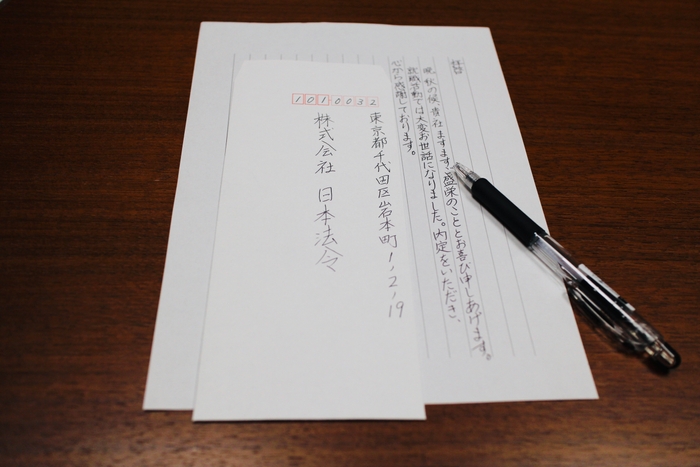 拝啓
晩秋の候貴社ますますご盛栄のこととお喜び申しあげます。
就職活動では大変お世話になりました。内定をいただき、
心から感謝しております。
1010032
東京都千代田区岩本町1-2-19
株式会社 日本法令